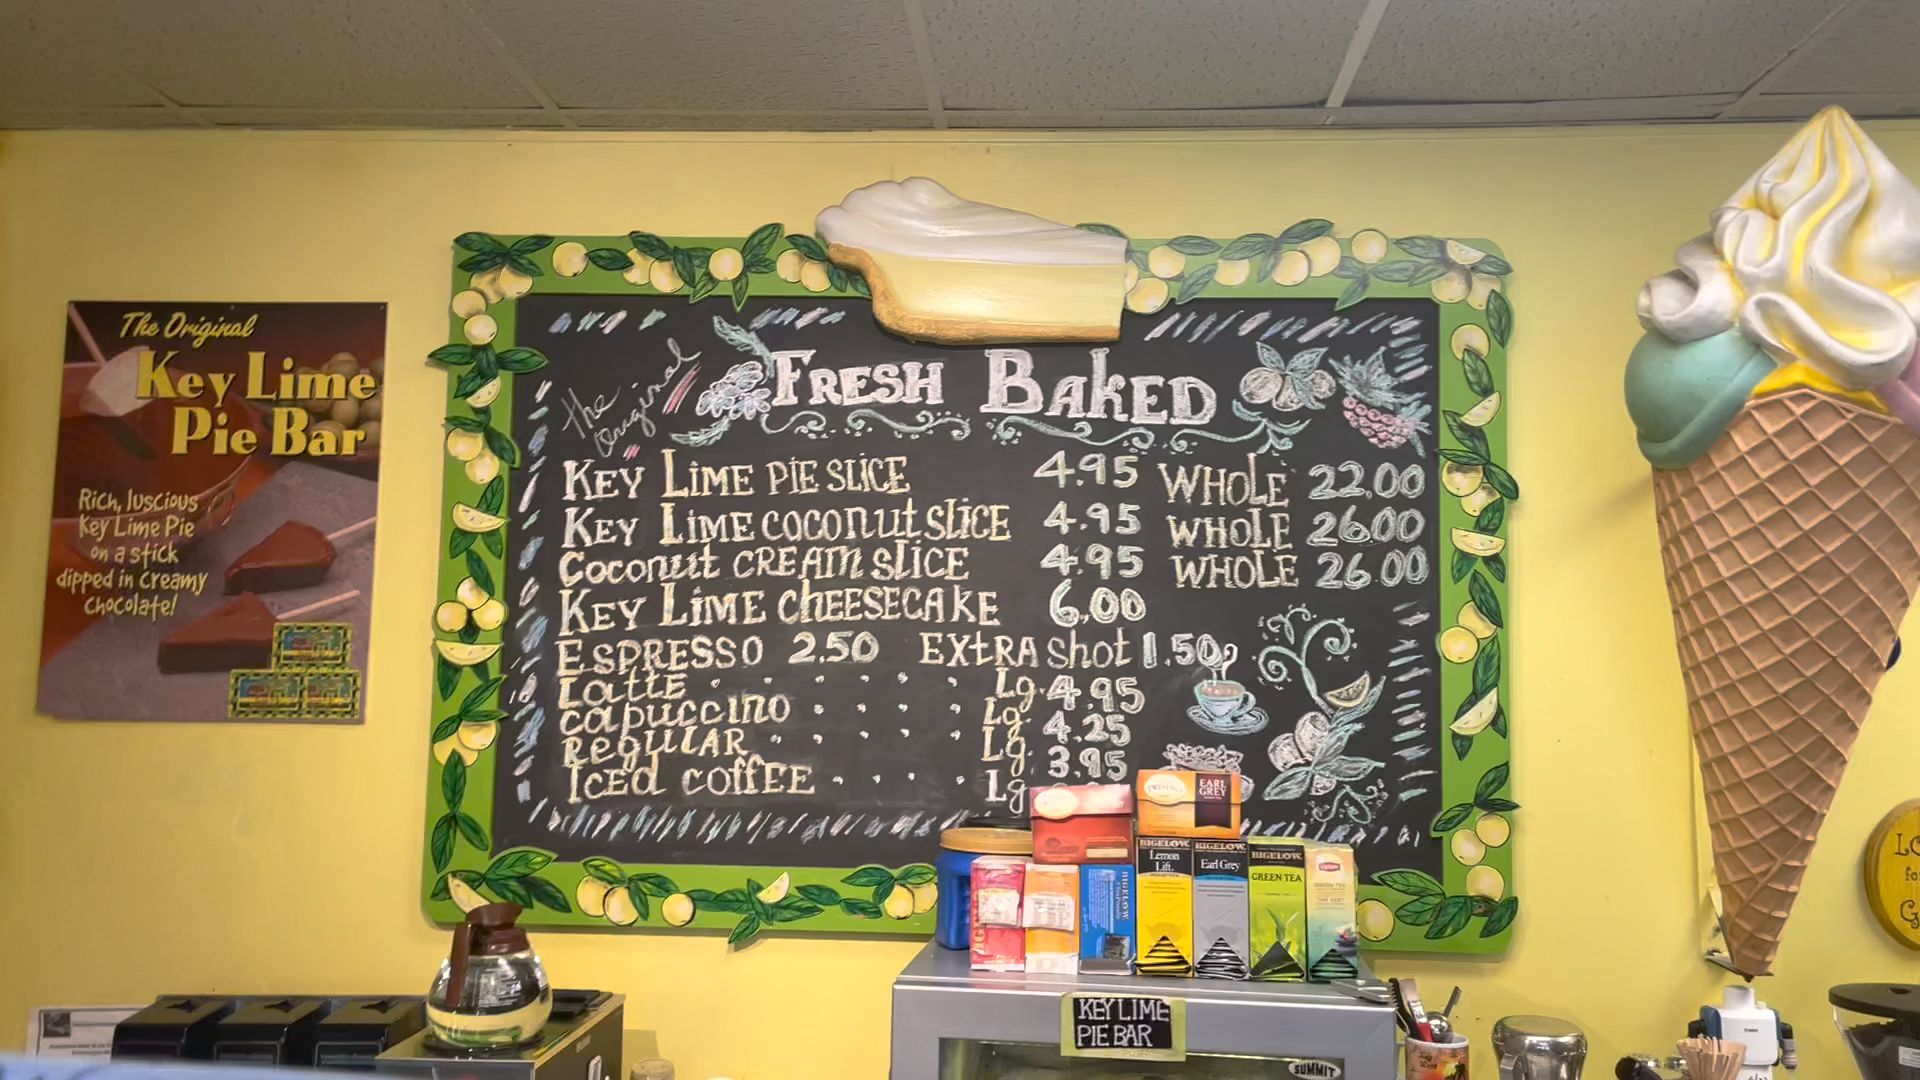 The Original
Key Lime
Pie Bar
Rich, luscious
Key Lime Pie
on a stick
dipped in creamy
chocolate!
the
Original
FRESH BAKED
KEY LIME PIE SLICE 4.95 WHOLE 22.00
KEY LIME COCONUT SLICE 4.95 WHOLE 26.00
Coconut CREAM SLICE 4.95 WHOLE 26.00
KEY LIME CHEESECAKE 6.00
ESPRESSO 2.50 EXTRA Shot 1.50
Latte Lg. 4.95
capuccino Lg. 4.25
REGULAR Lg. 3.95
Iced coffee Lg
EARL
GREY
BIGELOW
Lemon
Lift
BIGELOW
Earl Grey
BIGELOW
GREEN TEA
Lipton
GREEN TEA
BIGELOW
KEY LIME
PIE BAR
SUMMIT